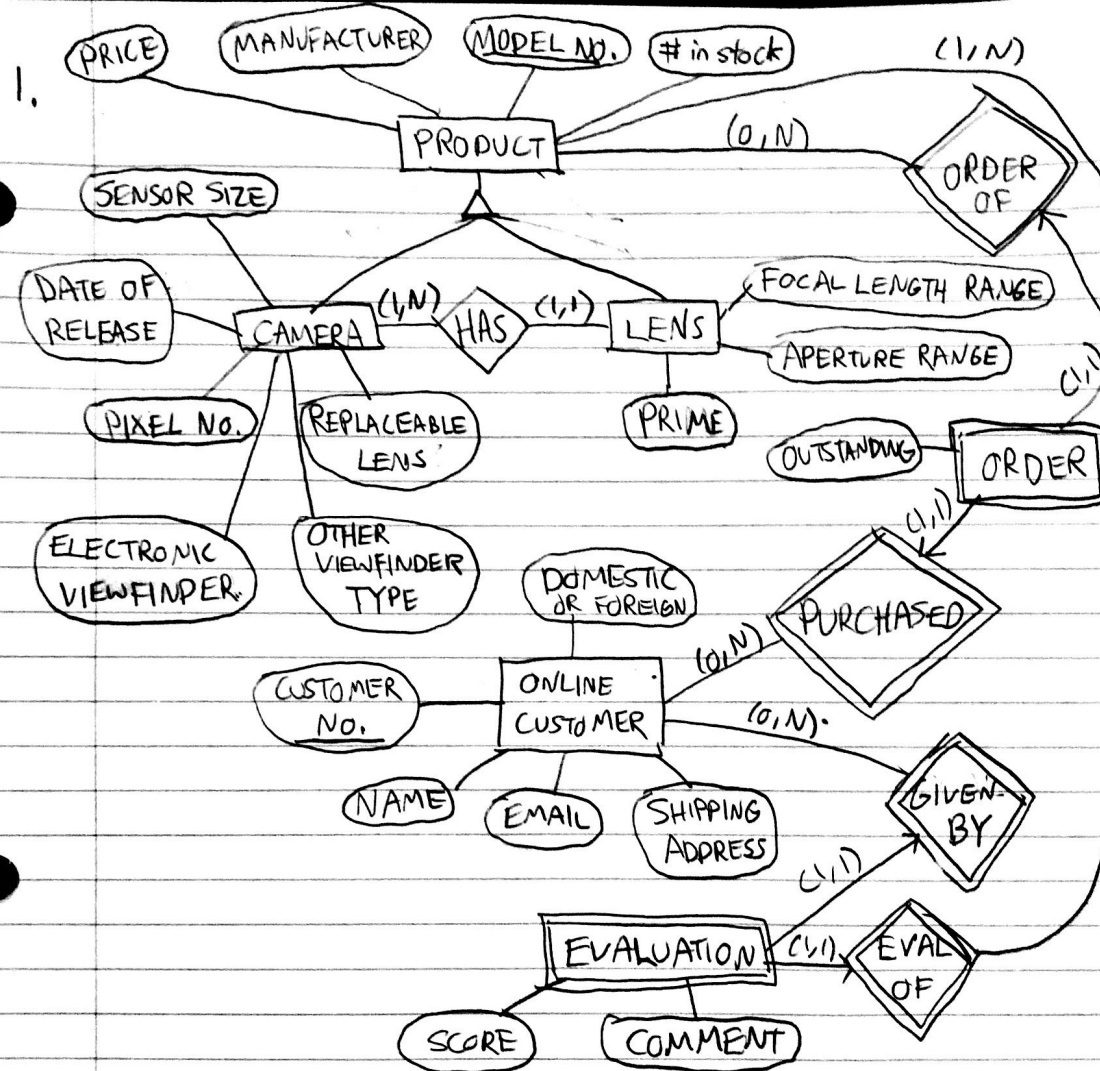 1.
PRICE
MANUFACTURER
MODEL NO.
# in stock
(1,N)
PRODUCT
(0,N)
ORDER
OF
SENSOR SIZE
DATE OF
RELEASE
CAMERA
(1,N)
HAS
(1,1)
LENS
FOCAL LENGTH RANGE
APERTURE RANGE
PIXEL NO.
REPLACEABLE
LENS
PRIME
(1,1)
OUTSTANDING
ORDER
(1,1)
ELECTRONIC
VIEWFINDER
OTHER
VIEWFINDER
TYPE
DOMESTIC
OR FOREIGN
PURCHASED
(0,N)
CUSTOMER
NO.
ONLINE
CUSTOMER
(0,N)
NAME
EMAIL
SHIPPING
ADDRESS
GIVEN
BY
(1,1)
EVALUATION
(1,1)
EVAL
OF
SCORE
COMMENT